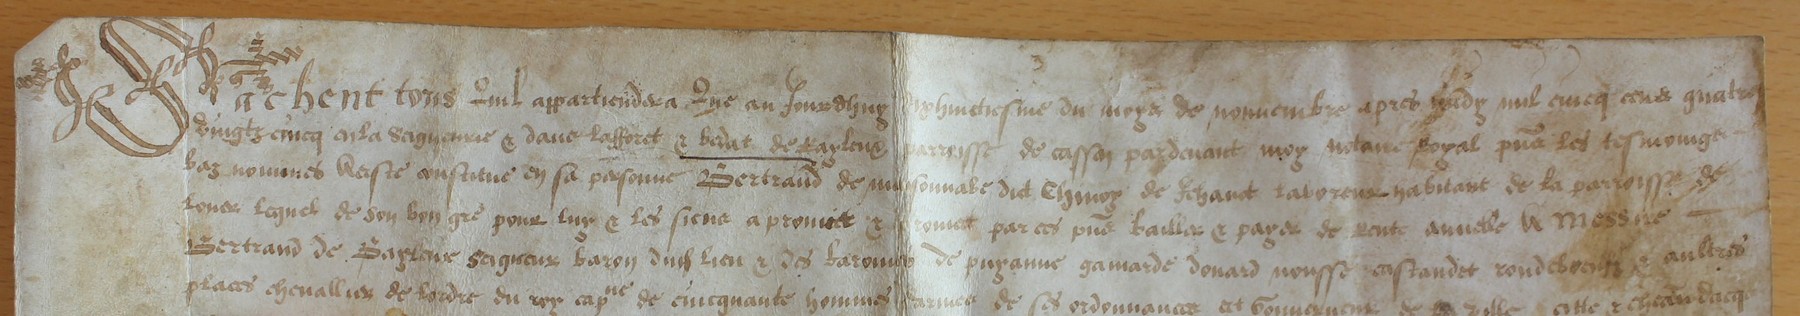 Sachent tous quil appartiendra que au Jourdhuy dixhuictiesme du moys de novembre apres midy mil cincq cens quatre
vingtz cincq en la Seigneurie & de & de Baylenx parroisse de cassen pardevant moy notaire Royal pnt les tesmoingz
bas nommes A este constitue en sa personne Bertrand de dict de laboureur habitant de la parroisse de
louer lequel de son bon gre pour luy & les siens a promict & promet par ces pntes bailler & payer de rente annuelle A Messire
Bertrand de Baylenx Seigneur baron dud lieu & des baronnies de poyanne gamarde donard nousse castandet & aultres
places chevallier de lordre du roy capne de cincquante hommes darmes de ses ordonnances et Gouverneur de la Ville citte & chasteau dacqs